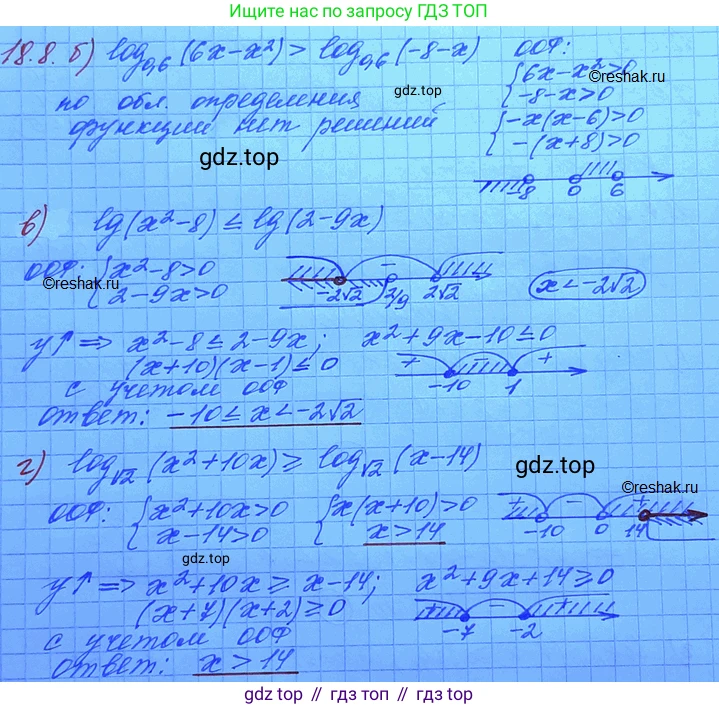 Ищите нас по запросу ГДЗ ТОП
18.8. б) log₀,₆ (6x-x²) > log₀,₆ (-8-x)
ООФ:
{6x-x²>0
{-8-x>0
©reshak.ru
по обл. определения
gdz.top
функции нет решений
{-x(x-6)>0
{-(x+8)>0
gdz.top
-8 0 6
в) lg(x²-8) ≤ lg(2-9x)
ООФ: {x²-8>0
{2-9x>0
©reshak.ru
-
-2√2 2/9 2√2
x<-2√2
y↑ => x²-8≤2-9x; x²+9x-10≤0
(x+10)(x-1)≤0
+ - +
-10 1
с учетом ООФ
ответ: -10≤x<-2√2
г) log√2 (x²+10x) ≥ log√2 (x-14)
gdz.top
©reshak.ru
ООФ: {x²+10x>0 {x(x+10)>0
{x-14>0 {x>14
+ - +
-10 0 14
gdz.top
y↑ => x²+10x≥x-14; x²+9x+14≥0
(x+7)(x+2)≥0
+ - +
-7 -2
с учетом ООФ
ответ: x>14
gdz.top // гдз топ // gdz.top